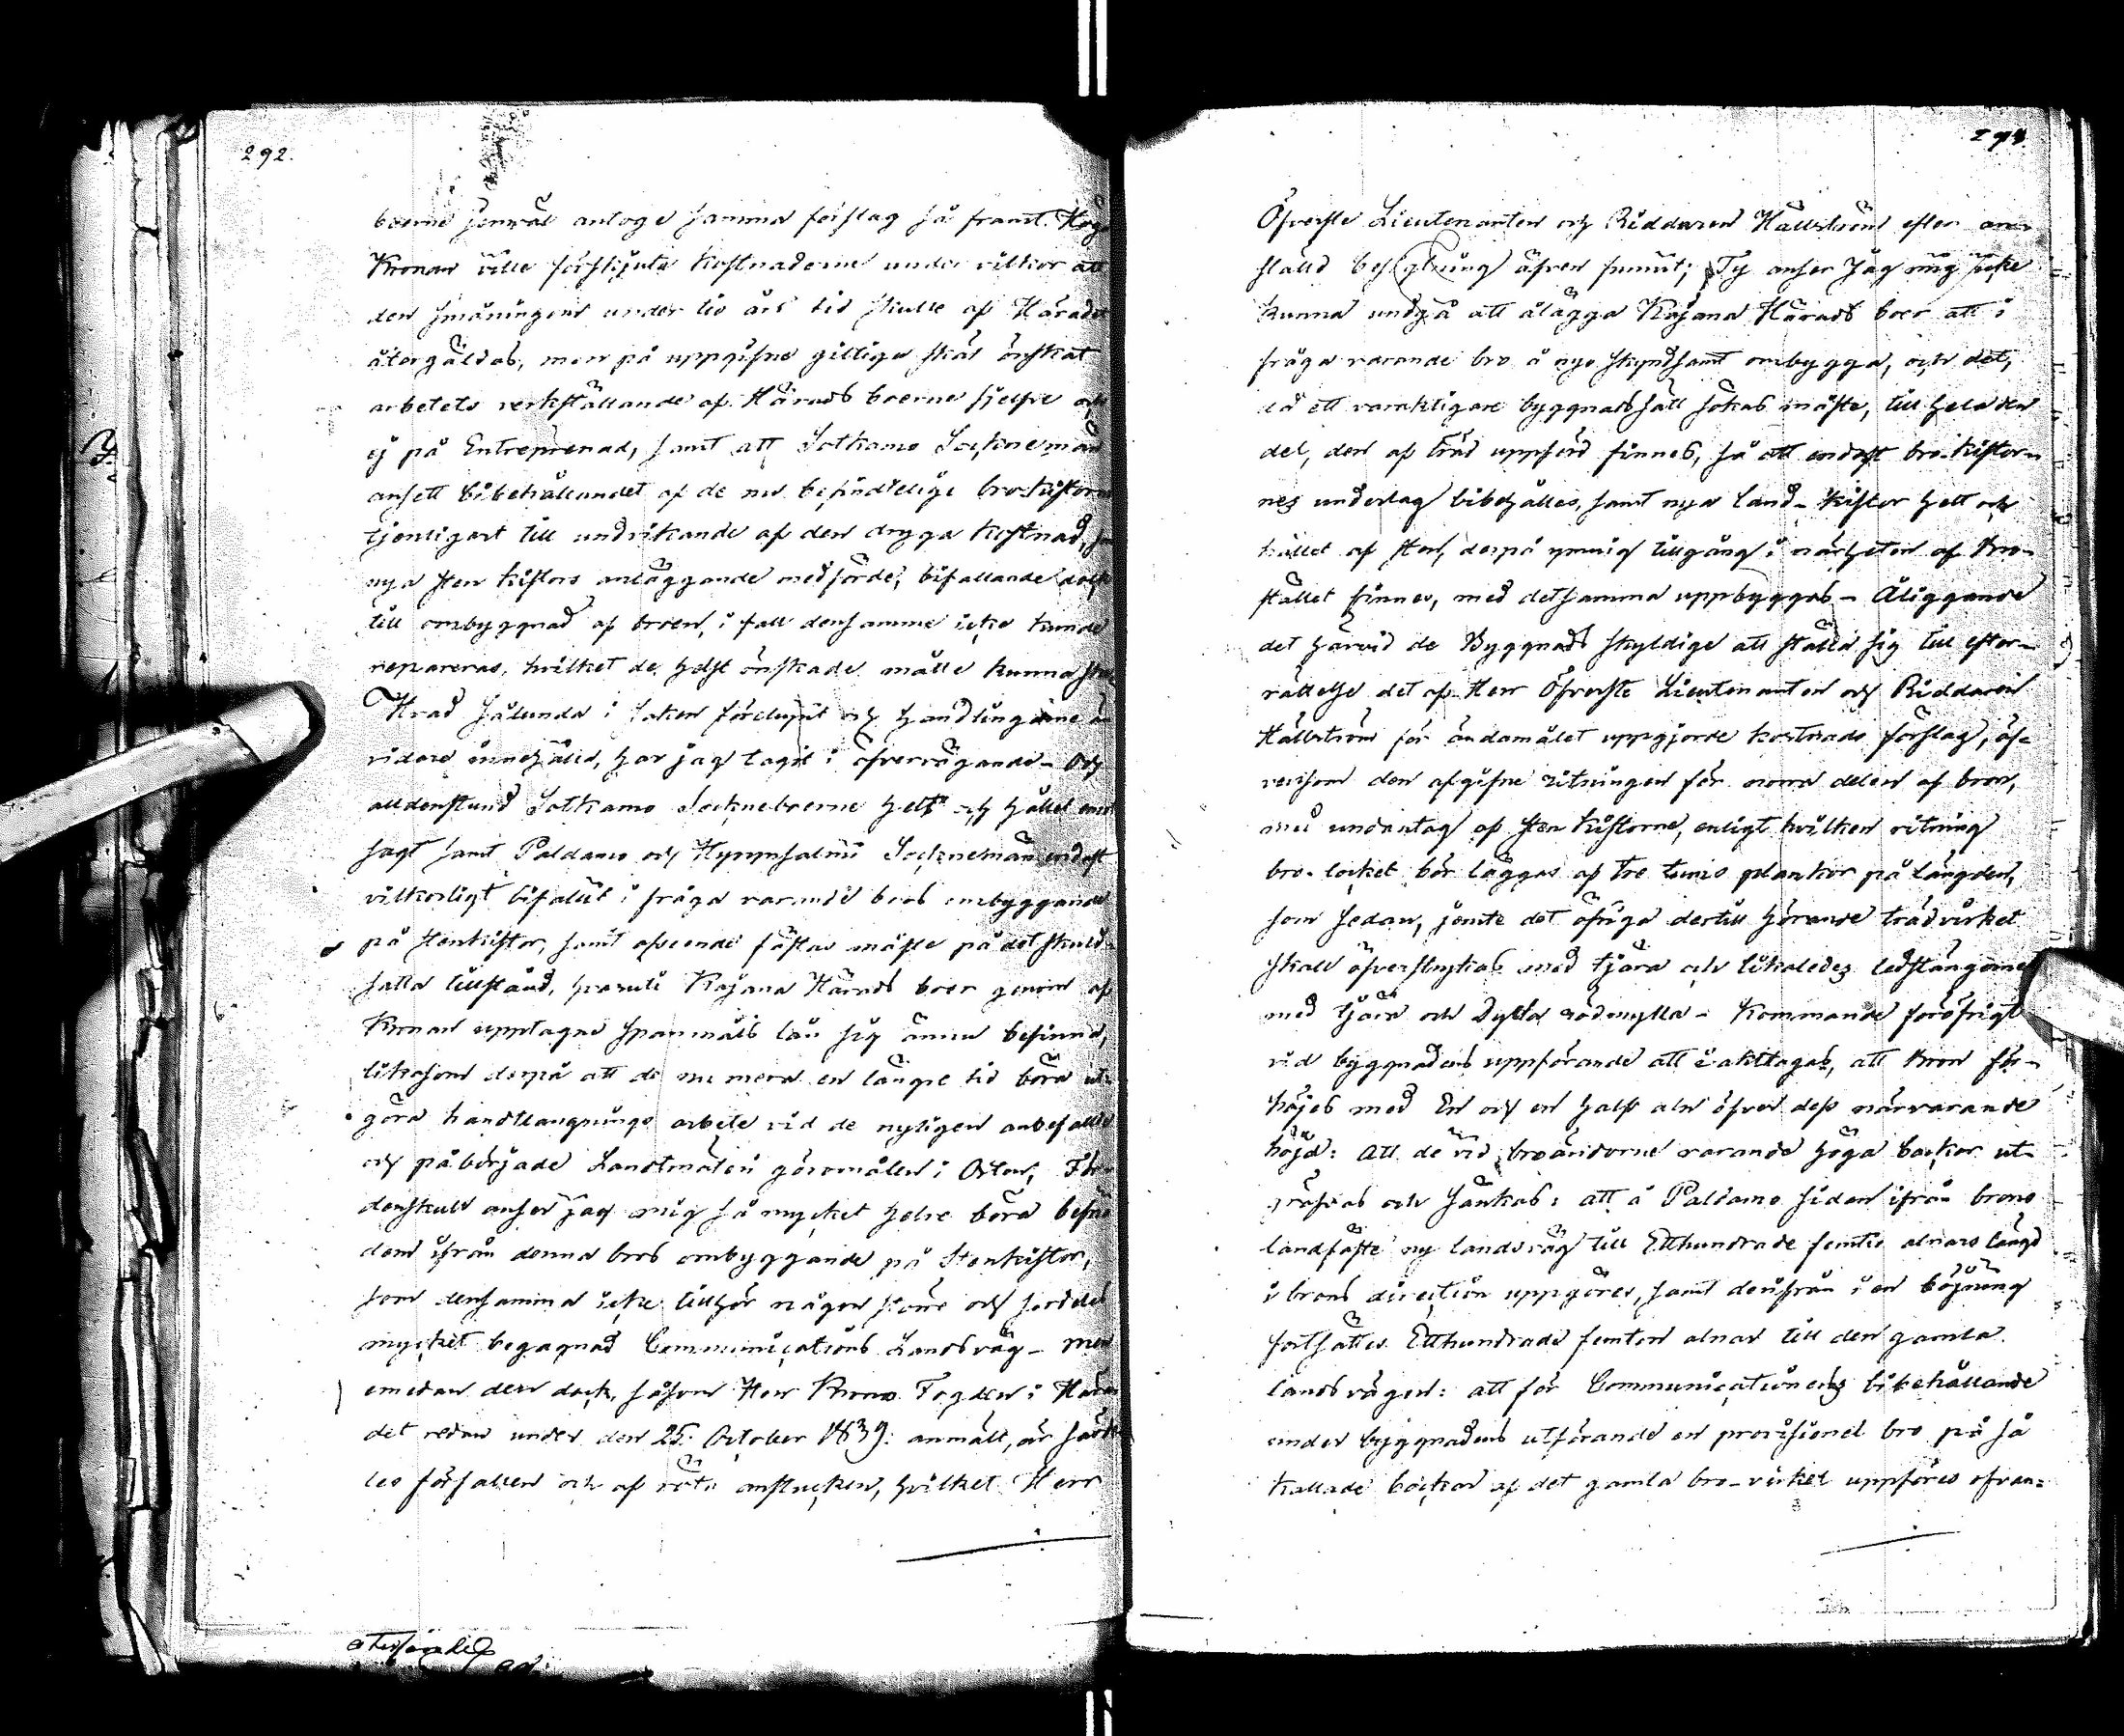 292.
boerne jemväl antoge samma förslag så framt Höga
Kronan ville förskjuta kostnaderne under vilkor att
den småningom under tio års tid skulle af Häradet
återgäldas, men på uppgifne giltige skäl önskat
arbetets verkställande af Härads boerne sjelfve och
ej på Entreprenad, samt att Sotkamo Sockneman
ansett bibehållandet af de nu befindtelige brokistorne
tjenligast till undvikande af den dryga kostnad,
nya sten kistors anläggande medförde, bifallande dock
till ombyggnad af broen, i fall densamme icke kunde
repareras, hvilket de helst önskade måtte kunna ske
Hvad sålunda i saken förelupit och handlingarne än
vidare innehålla, har jag tagit i öfvervägande – Och
alldenstund Sotkamo Sockneboerne helt och hållet emot
sagt samt Paldamo och Hyrynsalmi Socknemän endast
vilkorligt bifallit i fråga varande bros ombyggande
på stenkistor, samt afseende fästas måste på det skuld-
satta tillstånd, hvaruti Kajana Härads boer genom af
Kronan upptagne spanmåls lån sig ännu befinna,
likasom derpå att de nu mera en längre tid böra ut-
göra handtlangnings arbete vid de nyligen anbefallde
och påbörjade Landtmäteri göromålen i Orten; För
denskull anser jag mig så mycket heldre böra befria
dem ifrån denna bros ombyggande på Stenkistor,
som densamma icke tillhör någon större och serdeles
mycket begagnad Communications Landsväg – men
emedan den dock, såsom Herr Krono Fogden i Härad
det redan under den 25. October 1839: anmält, är sär
les förfallen och af röta anstucken, hvilket Herr
Öfverste Lieutenanten och Riddaren Hällström efter an-
ställd besigtning äfven funnit; Ty anser Jag mig icke
kunna undgå att ålägga Kajana Härads boer att i
fråga varande bro å nyo skyndsamt ombygga, och det,
då ett varaktigare byggnadssätt sökas måste, till hela den
del, den af träd uppförd finnes, så att endast brokistor-
nes underlag bibehålles, samt nya land-kistor helt och
hållet af sten, derpå ymnig tillgång i närheten af bro-
stället finnes, med detsamma uppbyggas – Åliggande
det härvid de Byggnads skyldige att ställa sig till efter-
rättelse det af Herr Öfverste Lieutenanten och Riddaren
Hällström för ändamålet uppgjorde kostnads förslag, äf-
vensom den afgifne ritningen för norra delen af bron,
med undantag af sten kistorne, enligt hvilken ritning
bro-locket bör läggas af Tre tums plankor på längden,
som sedan, jemte det öfriga dertill hörande trädvirket
skall öfverstrykas med tjära och likaledes ledstängerne
med tjära och Dylta rödmylla – Kommande föröfrigt
vid byggnadens uppförande att iakttagas, att bron för-
höjes med En och en half aln öfver dess närvarande
höjd: att de vid broändorne varande höga backar ut-
gräfvas och sänkas: att å Paldamo sidan ifrån brons
landfäste ny landsväg till Etthundrade femtio alnars längd
i brons direction uppgöres, samt derifrån i en böjning
fortsättes Etthundrade femton alnar till den gamla
landsvägen: att för Communicationens bibehållande
under byggnadens utförande en provisionel bro på så
kallade bockar af det gamla bro-virket uppföres ofvan-